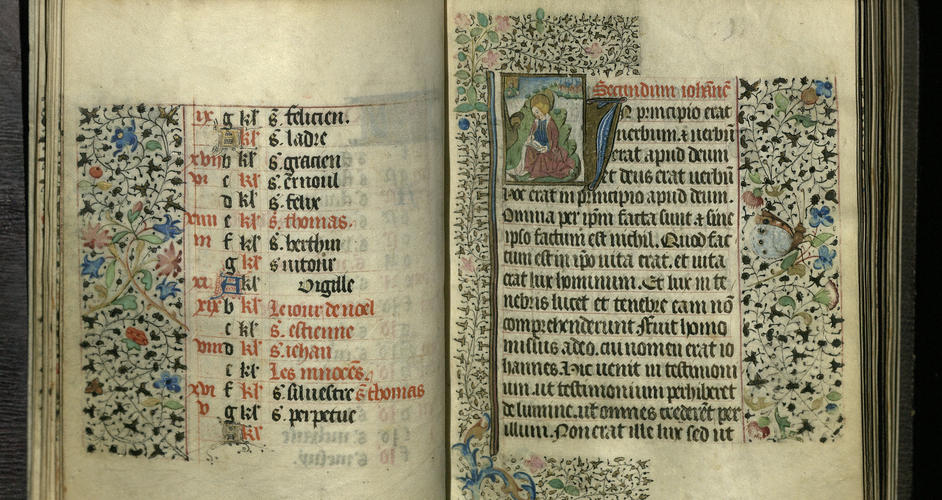 ix g kl' s. felicien.
A kl' s. ladre
xvii b kl' s. gracien
vi c kl' s. ernoul
d kl' s. felix
xiiii e kl' s. thomas.
iii f kl' s. berthin
g kl' s. uitour
xi A kl' Vigille
xix b kl' Le iour de noel
c kl' s. estienne
viii d kl' s. iehan
e kl' Les innocẽs.
xvi f kl' s. siluestre s. thomas
v g kl' s. perpetue
A kl'
Secundum iohãnẽ
In principio erat
uerbum. & uerbũ
erat apud deum
et deus erat uerbũ
hoc erat in principio apud deum.
Omnia per ip̃m facta sunt & sine
ipso factum est nichil. Quod fac
tum est in ip̃o uita erat. et uita
erat lux hominum. Et lux in te
nebris lucet et tenebre eam nõ
comprehenderunt. Fuit homo
missus a deo. cui nomen erat io
hannes. Hic uenit in testimoni
um. ut testimonium perhiberet
de lumine. ut omnes crederẽt per
illum. Non erat ille lux sed ut